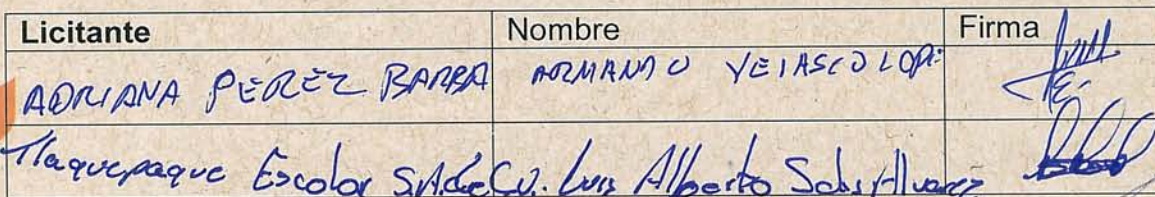 Licitante Nombre Firma
ADRIANA PEREZ BARBA ARMANDO VELASCO
Tlaquepaque Escolar SA de C.V. Luis Alberto Salas Alvarez